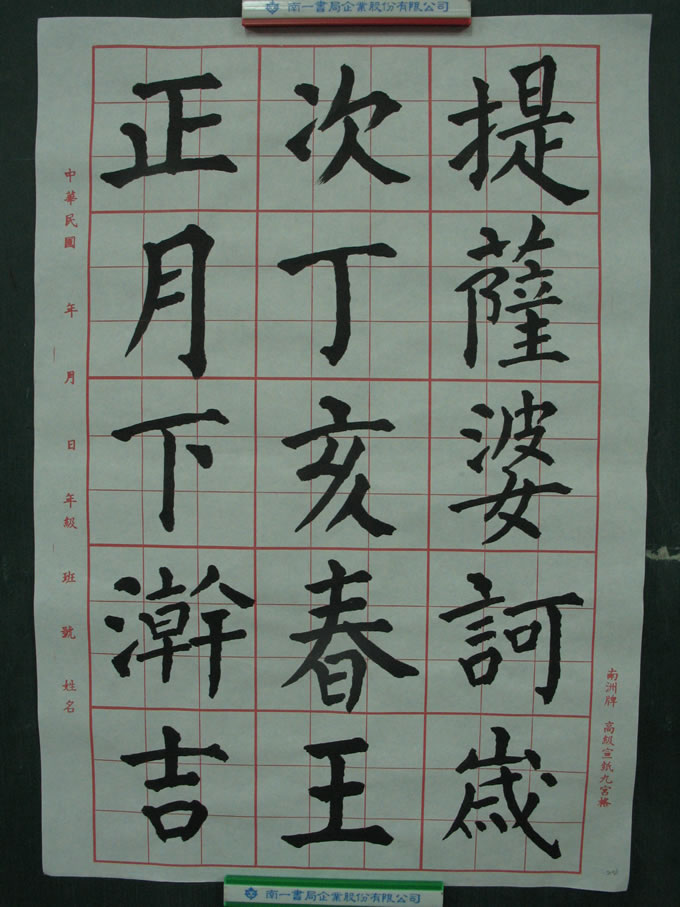 南一書局企業股份有限公司
提薩婆訶嵗
次丁亥春王
正月下澣吉
中華民國 年 月 日 年級 班 號 姓名
南洲牌 高級宣紙九宮格
南一書局企業股份有限公司